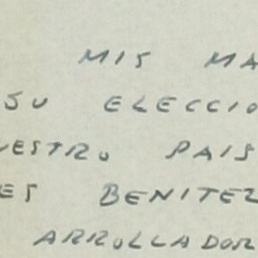 MIS MA
SU ELECCIO
UESTRO PAIS
ES BENITEZ
ARROLLADOR